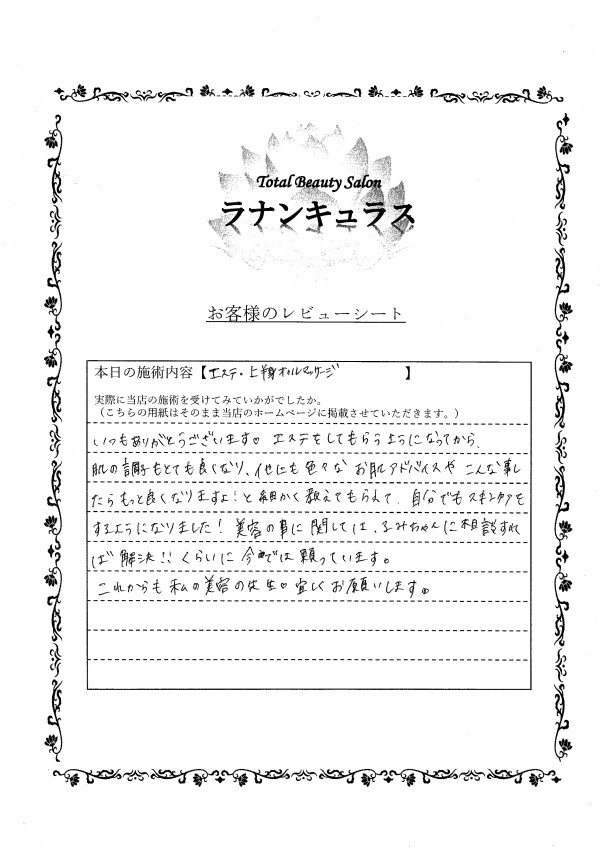 Total Beauty Salon
ラナンキュラス
お客様のレビューシート
本日の施術内容【エステ・上半身オイルマッサージ】
実際に当店の施術を受けてみていかがでしたか。
(こちらの用紙はそのまま当店のホームページに掲載させていただきます。)
いつもありがとうございます♡ エステをしてもらうようになってから、
肌の調子もとても良くなり、他にも色々なお肌アドバイスや こんな事し
たらもっと良くなりますよ!と細かく教えてもらえて、自分でもスキンケアを
するようになりました! 美容の事に関しては、るみちゃんに相談すれ
ば 解決!! くらいに 今では頼っています。
これからも 私の美容の先生♡ 宜しくお願いします。